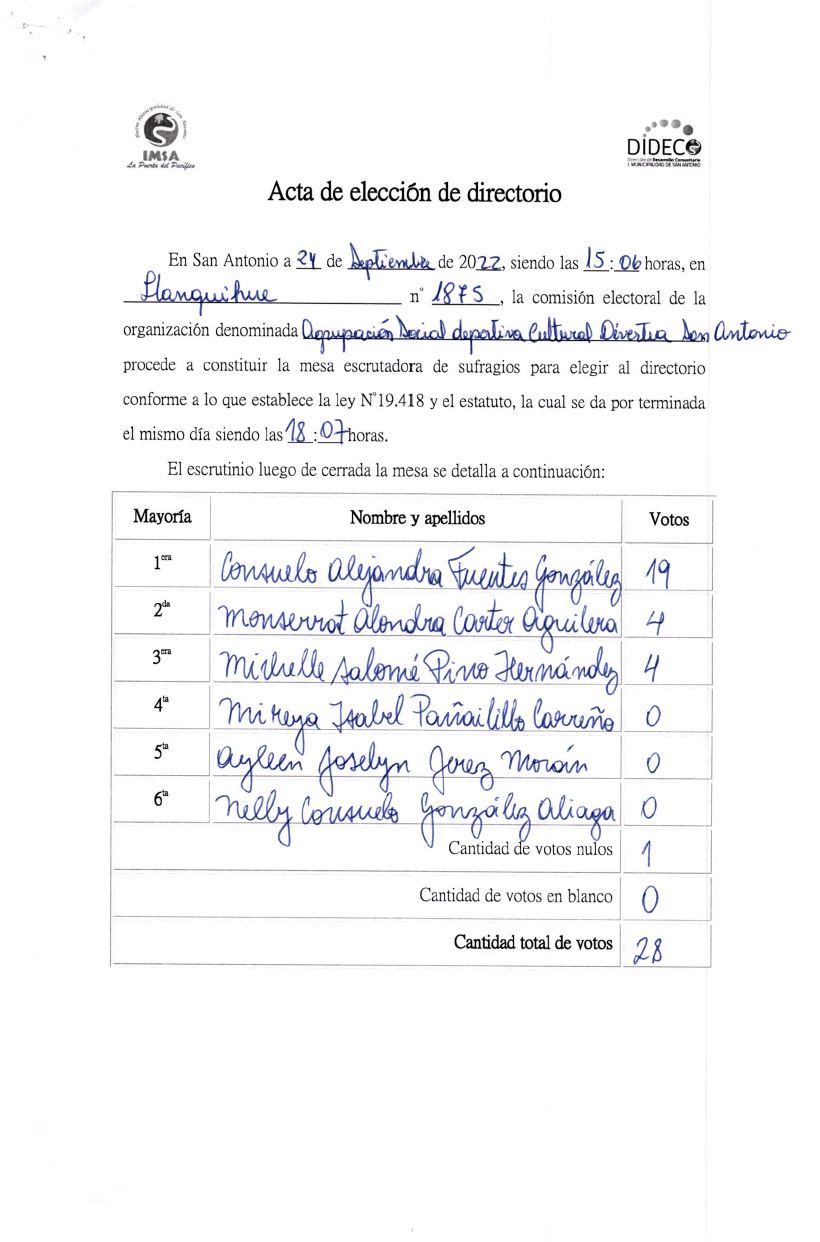 Ilustre Municipalidad de San Antonio
IMSA
La Puerta del Pacífico
DIDECO
Dirección de Desarrollo Comunitario
I. MUNICIPALIDAD DE SAN ANTONIO
Acta de elección de directorio
En San Antonio a 24 de Septiembre de 2022, siendo las 15:06 horas, en
Llanquihue n° 1875, la comisión electoral de la
organización denominada Agrupación Social deportiva Cultural Divertia San Antonio
procede a constituir la mesa escrutadora de sufragios para elegir al directorio
conforme a lo que establece la ley N°19.418 y el estatuto, la cual se da por terminada
el mismo día siendo las 18:07 horas.
El escrutinio luego de cerrada la mesa se detalla a continuación:
Mayoría Nombre y apellidos Votos
1era Consuelo Alejandra Fuentes González 19
2da Monserrat Alondra Carter Aguilera 4
3era Michelle Salomé Pino Hernández 4
4ta Mireya Isabel Pañailillo Carreño 0
5ta Ayleen Joselyn Jerez Morán 0
6ta Nelly Consuelo González Aliaga 0
Cantidad de votos nulos 1
Cantidad de votos en blanco 0
Cantidad total de votos 28